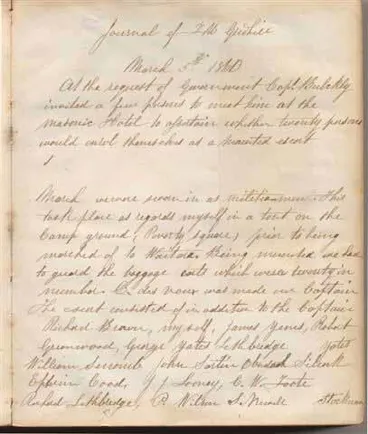 Journal of
March 5th 186
At the request of Government Capt
invited a few persons to meet him at the
Masonic Hotel to ascertain whether twenty persons
would enrol themselves as a mounted escort
March we were sworn in as militiamen. This
took place as regards myself in a tent on the
Camp ground, Poverty square, prior to being
marched of to Waitara. Being mounted we had
to guard the baggage carts which were twenty in
number. C. des Voeux was made our Captain
The escort consisted of in addition to the Captain
Richard Brown, myself, James Yems, Robert
Greenwood, George Yates Lethbridge
William John Obadiah Silcock
Ephrim Coad, J. J. Looney, C. W. Foote
Richard Lethbridge, P. Wilson S. Newell Stockman